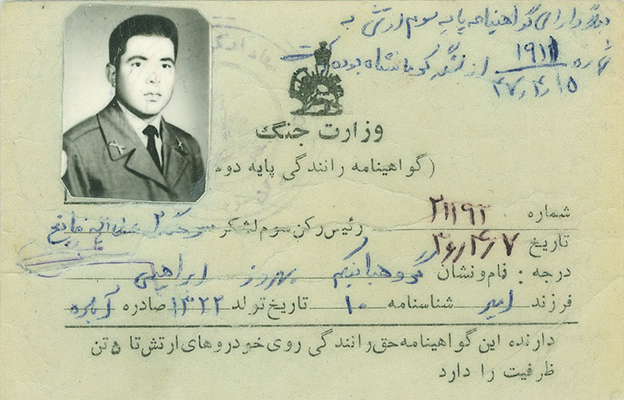 دارای گواهینامه پایه سوم ارتش به
شماره ۱۹۱۱ از لشگر کرمانشاه بوده است
۴۷/۴/۱۵
وزارت جنگ
(گواهینامه رانندگی پایه دوم
شماره ۲۱۱۹۲
رئیس رکن سوم لشکر سرهنگ ۲
تاریخ
درجه : نام و نشان گروهبانیکم بهروز ابراهیمی
فرزند امیر شناسنامه ۱۰ تاریخ تولد ۱۳۲۲ صادره
دارنده این گواهینامه حق رانندگی روی خودروهای ارتش تا ۵ تن
ظرفیت را دارد